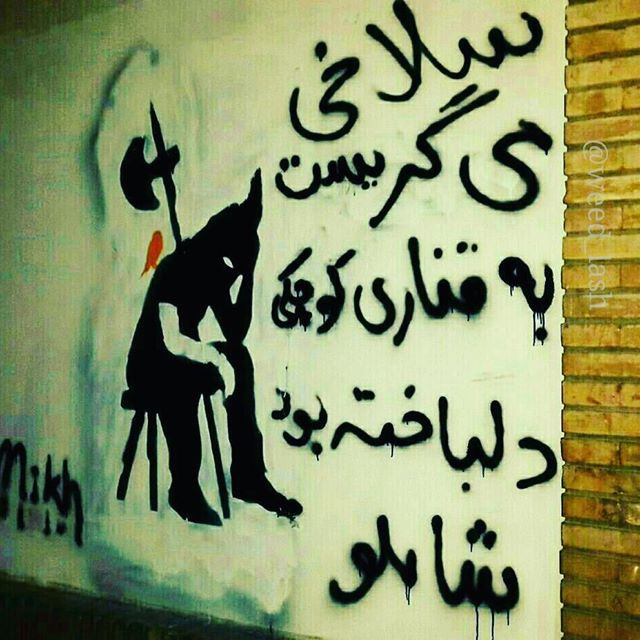 سلاخی
می گریست
به قناری کوچکی
دلباخته بود
شاملو
Mikh